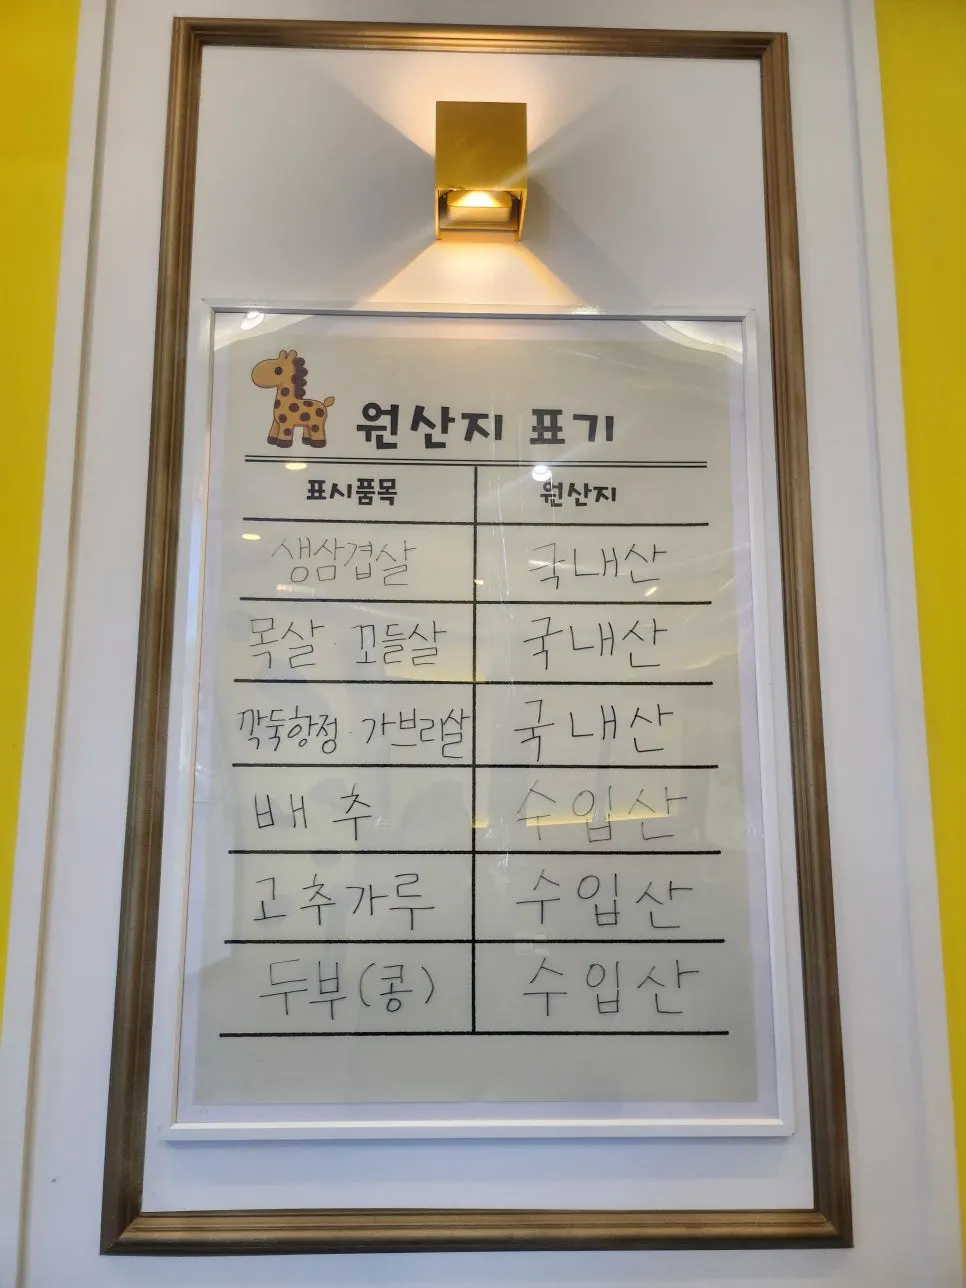 원산지 표기
표시품목 원산지
생삼겹살 국내산
목살·꼬들살 국내산
깍둑항정·가브리살 국내산
배추 수입산
고추가루 수입산
두부(콩) 수입산